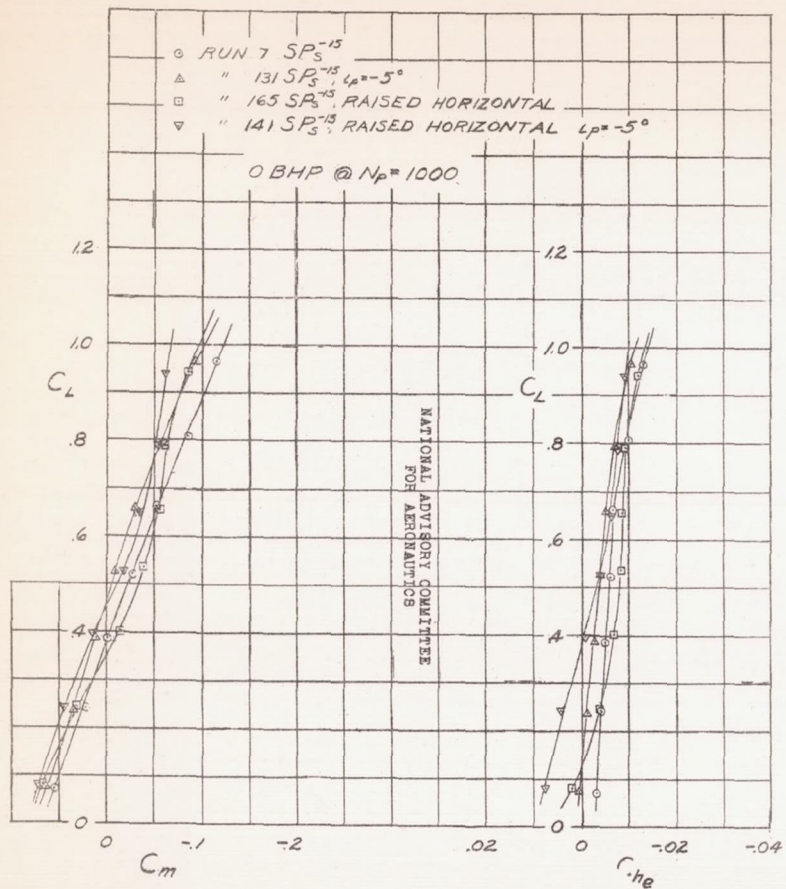 ⊙ RUN 7 SPₛ⁻¹⁵
△ " 131 SPₛ⁻¹⁵, ιₚ=-5°
⊡ " 165 SPₛ⁻¹⁵, RAISED HORIZONTAL
▽ " 141 SPₛ⁻¹⁵, RAISED HORIZONTAL ιₚ=-5°
0 BHP @ Nₚ=1000
1.2
1.0
C_L
.8
.6
.4
.2
0
0 -.1 -.2
C_m
NATIONAL ADVISORY COMMITTEE
FOR AERONAUTICS
1.2
1.0
C_L
.8
.6
.4
.2
0
.02 0 -.02 -.04
C_he